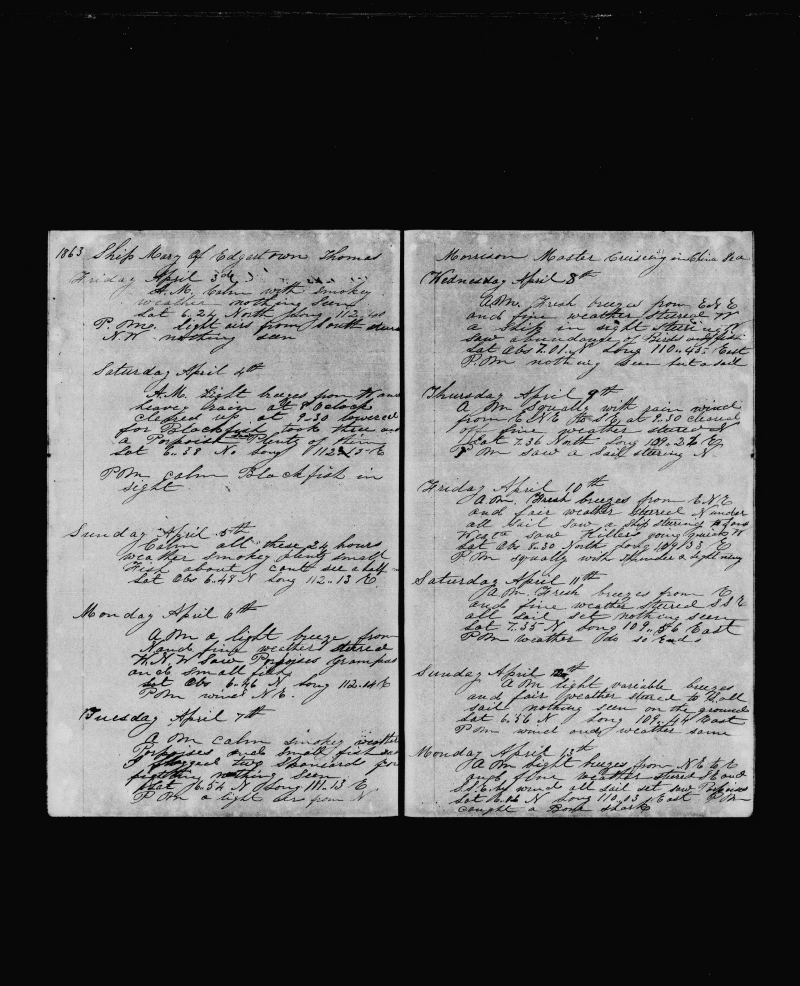 1863 Ship Mary Of Edgartown Thomas
Friday April 3d
A.M. Calm with smokey
weather nothing seen
Lat 6.24 North Long 112.
P. Me. Light airs from South
N.W nothing seen
Saturday April 4th
A.M. Light breeze from W and
heavy at 8 Oclock
cleared up at 9.30 lowered
for Blackfish took three and
a Porpoise Plenty of them
Lat 6..38 No Long 112..15 E
P M calm Blackfish in
sight
Sunday April 5th
Calm all these 24 hours
weather smokey plenty small
Fish about cant see a half
Lat Obs 6.48 N Long 112..13 E
Monday April 6th
A M a light breeze from
N and fine weather steered
W.N.W saw Porpoises Grampus
and small fish
Lat Obs 6.46 N Long 112.14 E
P M wind N.E.
Tuesday April 7th
A M calm smokey weather
Porpoises and small fish
I flogged two Spaniard for
fighting nothing seen
Lat 6.54 N Long 111.13 E
P M a light air from N
Morrison Master Cruiseing in China Sea
Wednesday April 8th
A M. Fresh breezes from E N E
and fine weather steered W
a Ship in sight steering
saw abundance of Birds and fish
Lat Obs 7.01 N Long 110..45 East
P. M nothing seen but a sail
Thursday April 9th
A M Squally with rain wind
from E N E to S E at 8.30 cleared
off fine weather steered N
Lat 7.36 North Long 109.26 E
P M saw a Sail stering N
Friday April 10th
A M. Fresh breezes from E.N.E
and fair weather steered N under
all sail saw a Ship stering
saw Killers going quick W
Lat Obs 8.30 North Long 109.33 E
P M squally with Thunder & Lightning
Saturday April 11th
A M. Fresh breezes from E
and fine weather stered S S E
all sail set nothing seen
Lat 7.35 N Long 109..56 East
P M weather do so Ends
Sunday April 12th
A M light variable breezes
and fair weather stered to all
sail nothing seen on the ground
Lat 6.56 N Long 109..44 East
P M wind and weather same
Monday April 13th
A M Light breezes from N E to E
and fine weather stered S E and
S.S.E by wind all sail set saw Porpoises
Lat 6.06 N Long 110.03 East P M
caught a Bone shark